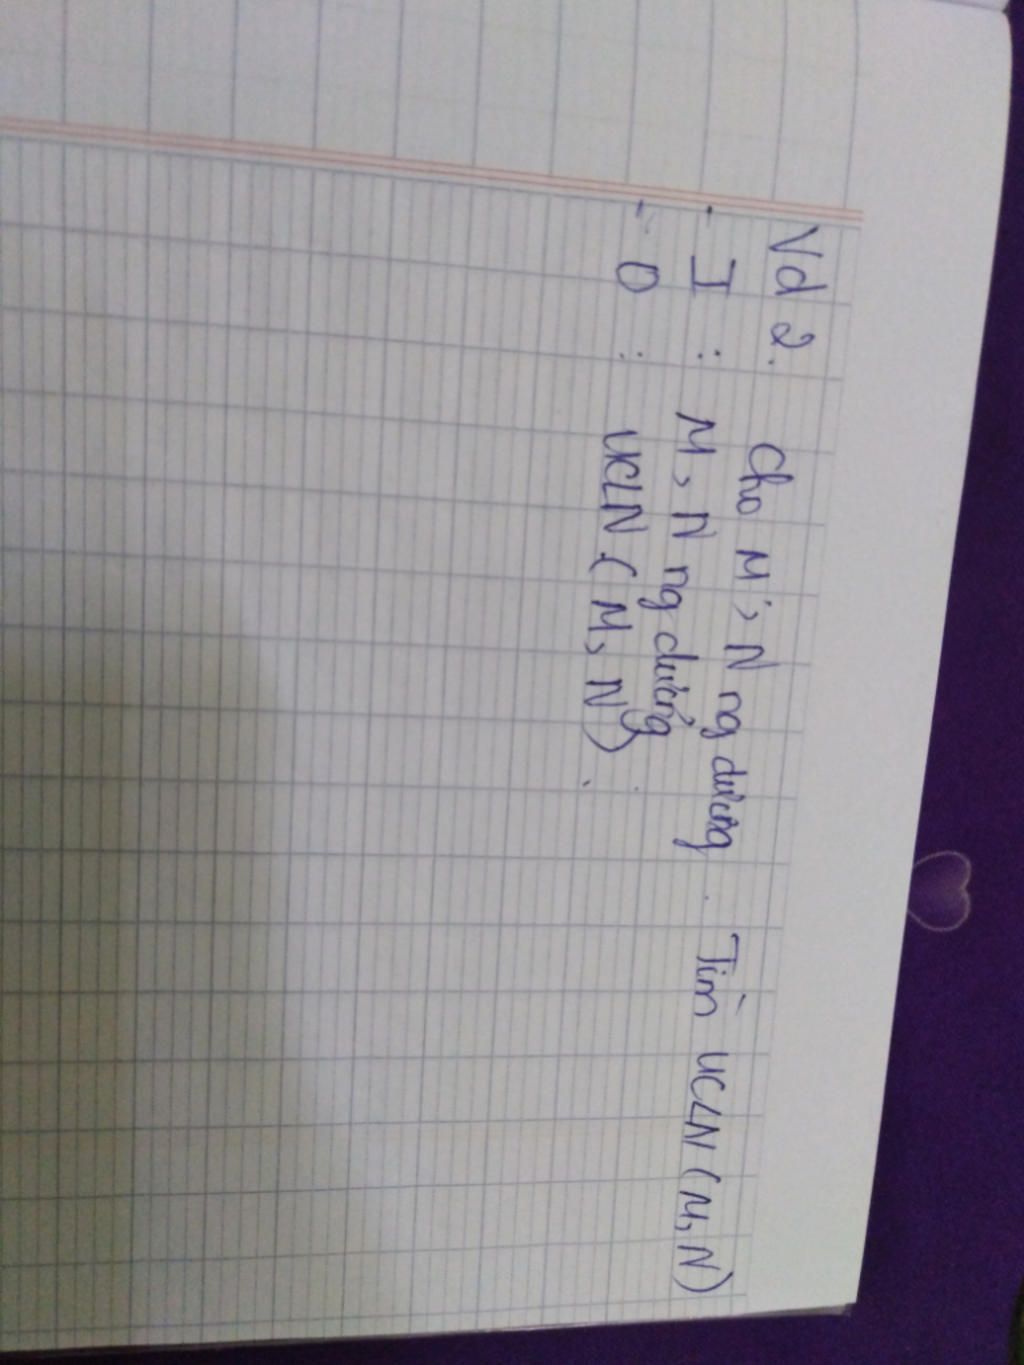 Vd 2. Cho M, N ng dương. Tìm UCLN (M, N)
- I : M, N ng dương
- O : UCLN (M, N).